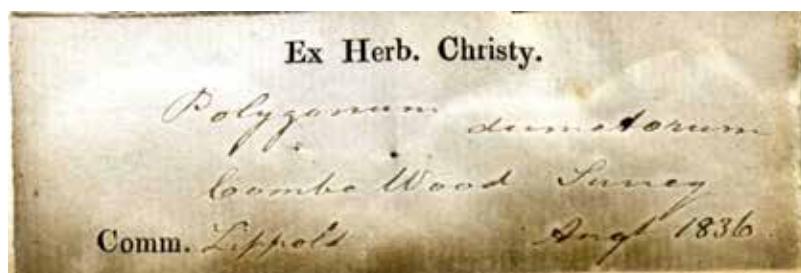 Ex Herb. Christy.
Polygonum dumetorum
Coombe Wood Surrey
Comm. Lippold Augt 1836